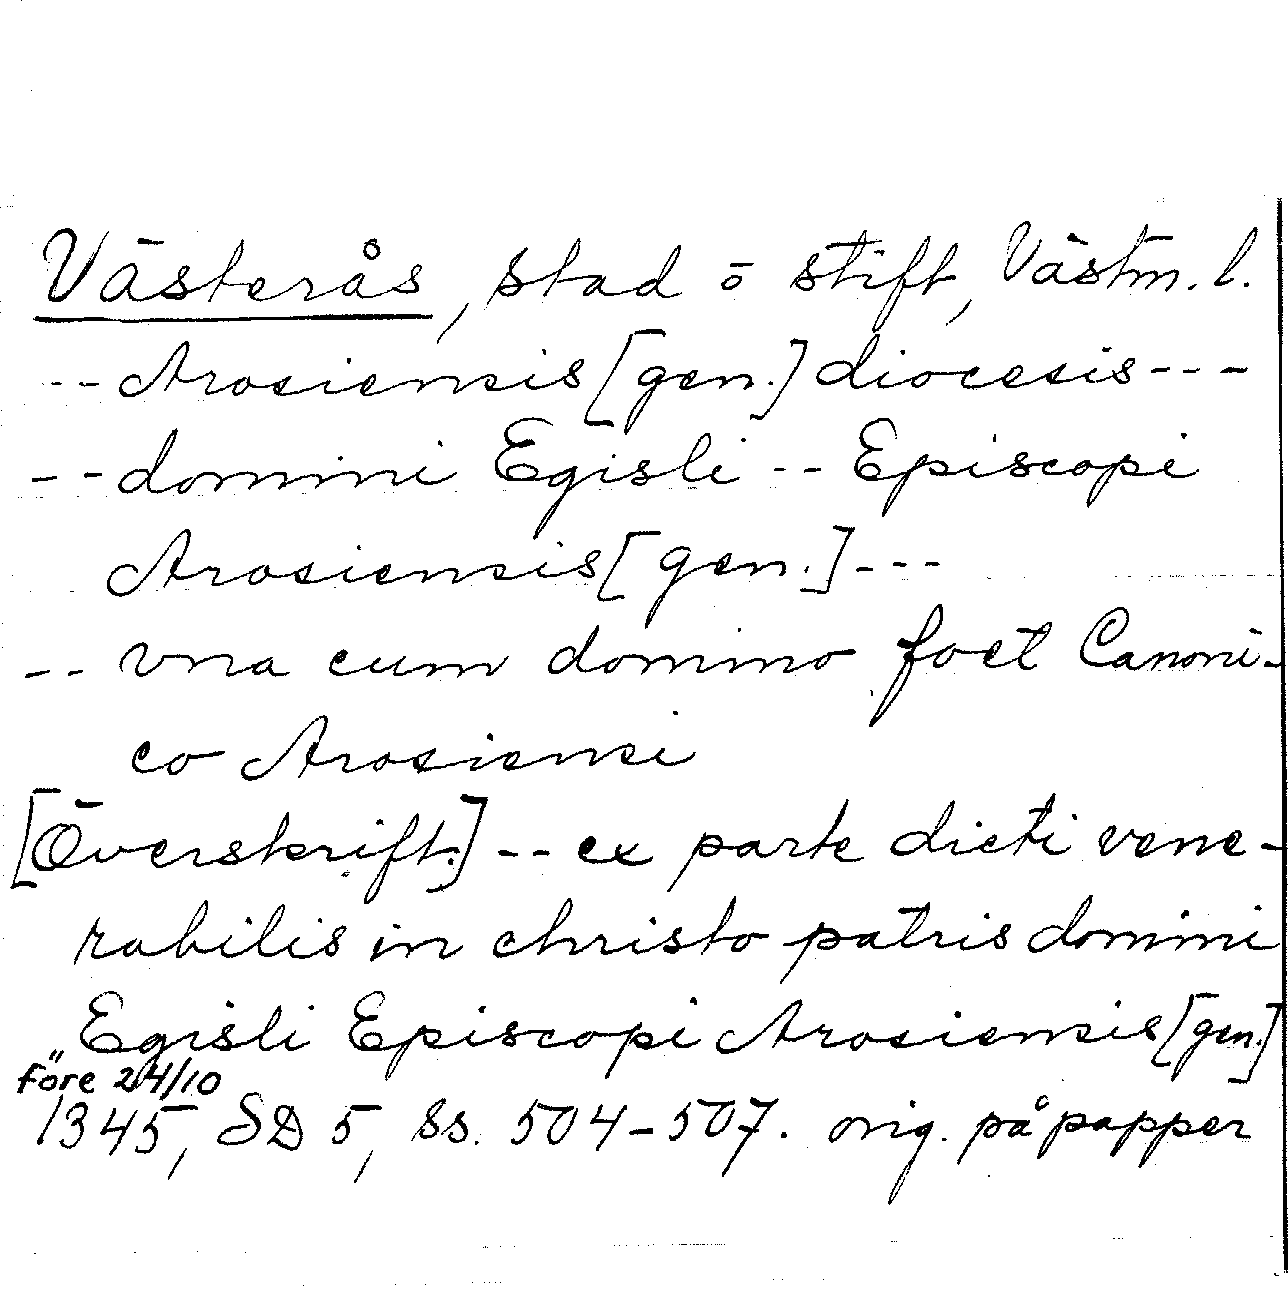 Västerås, stad o stift, Västm. l.
-- Arosiensis [gen.] diocesis ---
-- domini Egisli -- Episcopi
Arosiensis [gen.] ---
-- vna cum domino foet Canoni-
co Arosiensi
[Överskrift.] -- ex parte dicti vene-
rabilis in christo patris domini
Egisli Episcopi Arosiensis [gen.]
före 24/10
1345, SD 5, ss. 504-507. orig. på papper